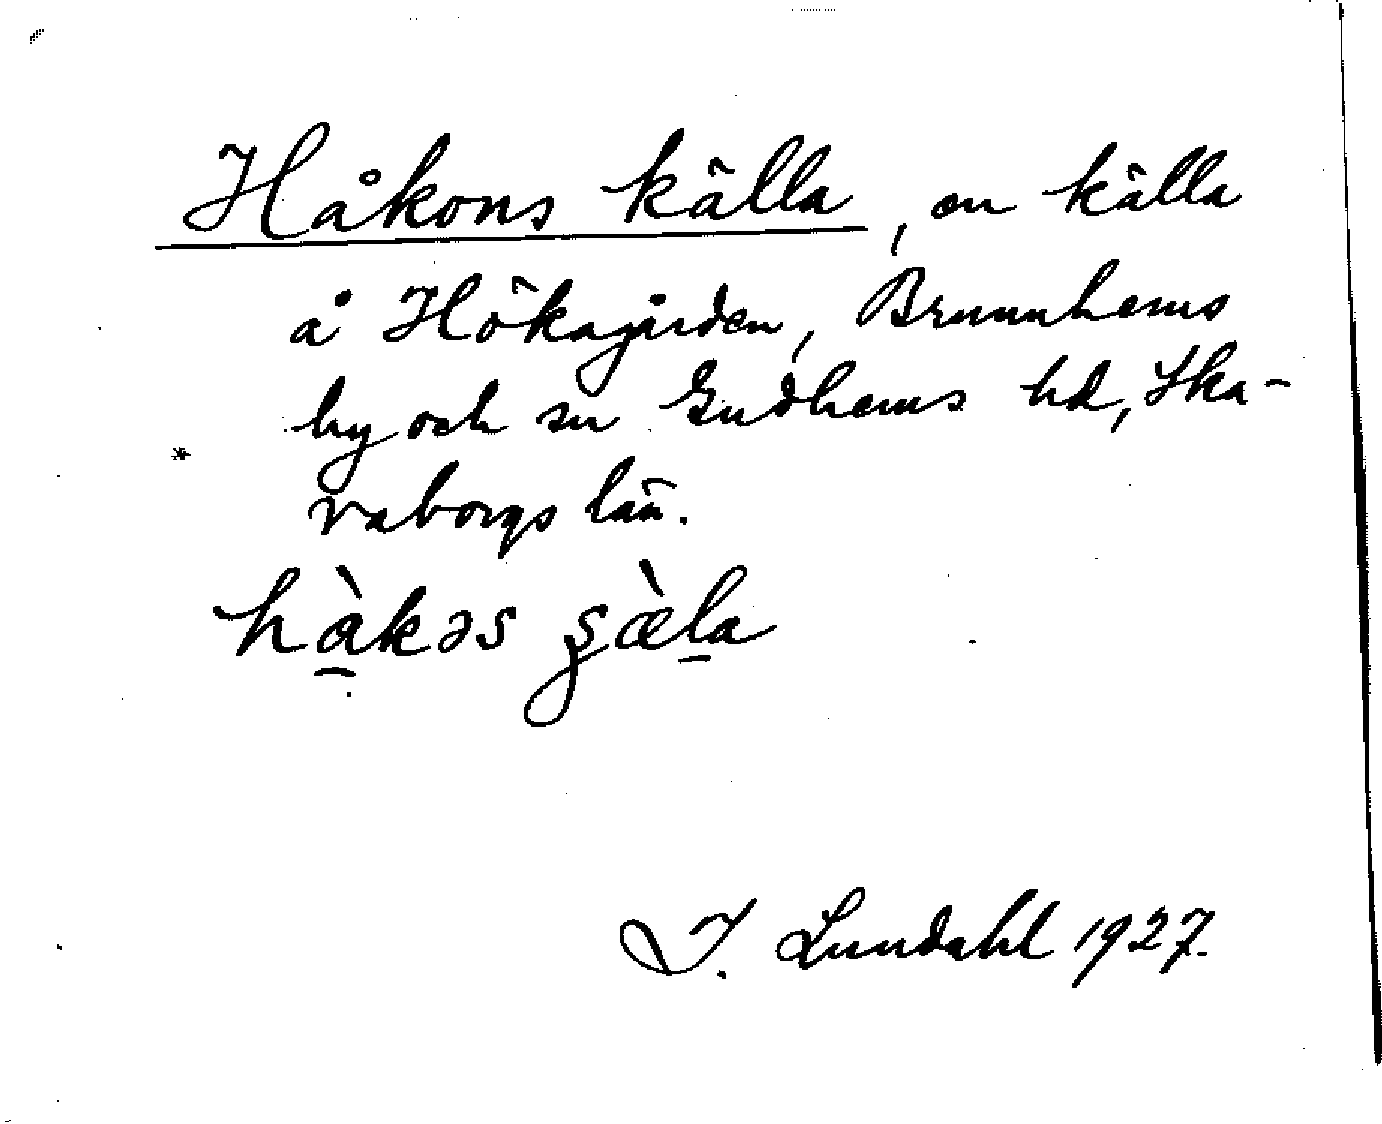 Håkons källa, en källa
å Hökagården, Brunnhems
by och sn Gudhems hd, Ska-
raborgs län.
hàkəs ʂæ̀la
I. Lundahl 1927.